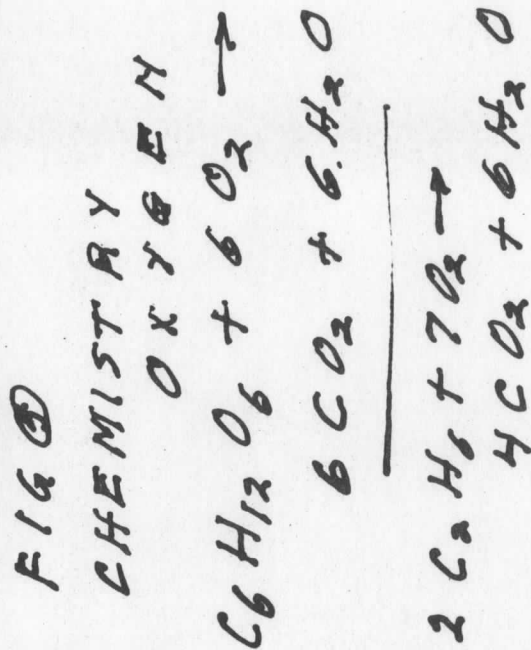 FIG ④
CHEMISTRY
OXYGEN
C₆H₁₂O₆ + 6O₂ →
6CO₂ + 6H₂O
2C₂H₆ + 7O₂ →
4CO₂ + 6H₂O